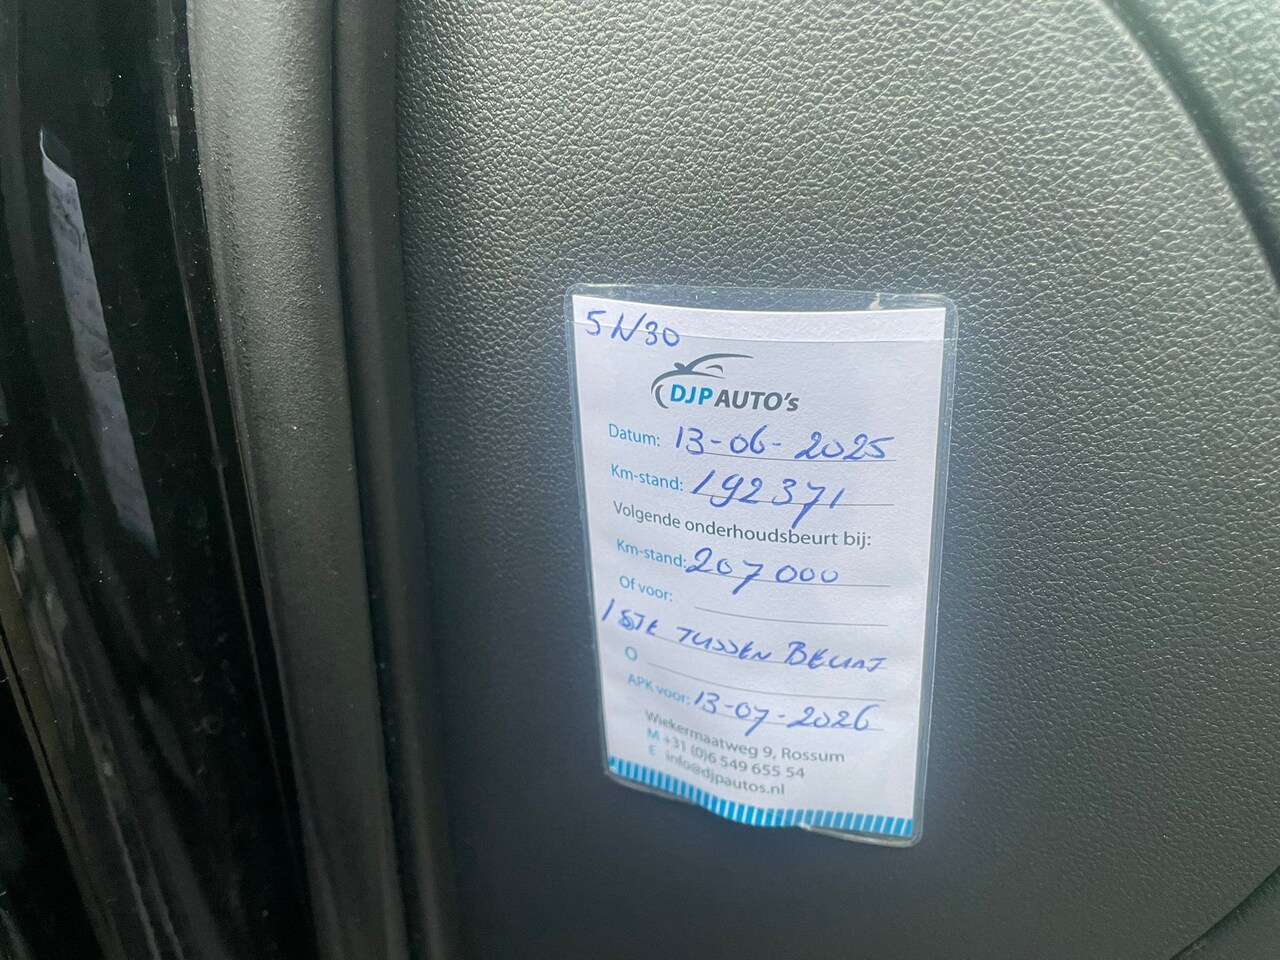 5W30
DJP AUTO's
Datum: 13-06-2025
Km-stand: 192371
Volgende onderhoudsbeurt bij:
Km-stand: 207000
Of voor:
1STE TUSSEN BEURT
O
APK voor: 13-07-2026
Wiekermaatweg 9, Rossum
M +31 (0)6 549 655 54
E info@djpautos.nl